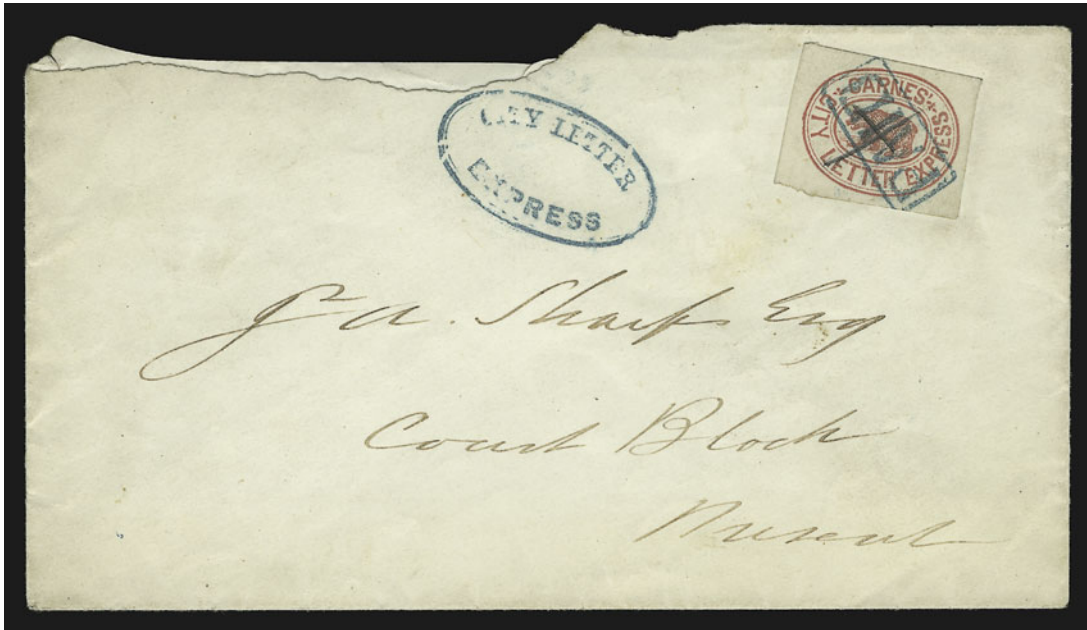 CITY LETTER
EXPRESS
CARNES'
CITY LETTER EXPRESS
Jno A. Sharp Esq
Court Block
Present